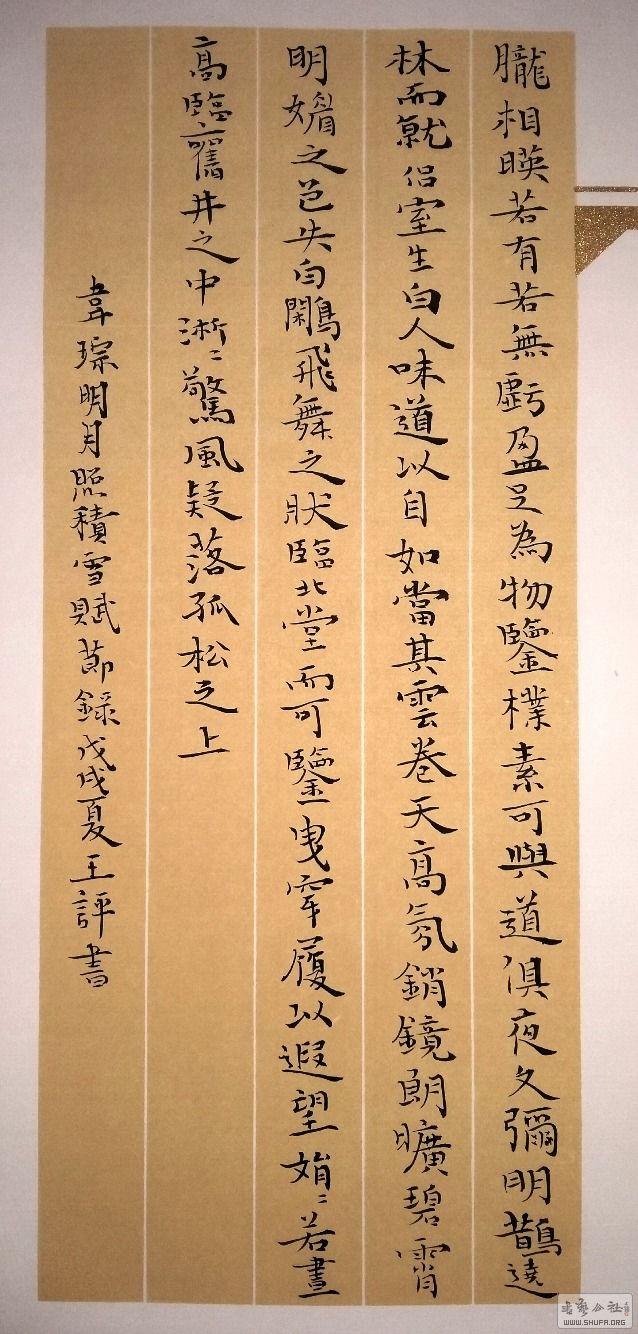 朧相暎若有若無虧盈足為物鑒樸素可與道俱夜久彌明鵲遶
林而就侣室生白人味道以自如當其雲卷天高氛銷鏡朗曠碧霄
明媚之色失白鷴飛舞之狀臨北堂而可鑒曳穿履以遐望娟〻若晝
高臨舊井之中淅〻驚風疑落孤松之上
韋琮明月照積雪賦節錄戊戌夏王評書
书艺公社
WWW.SHUFA.ORG